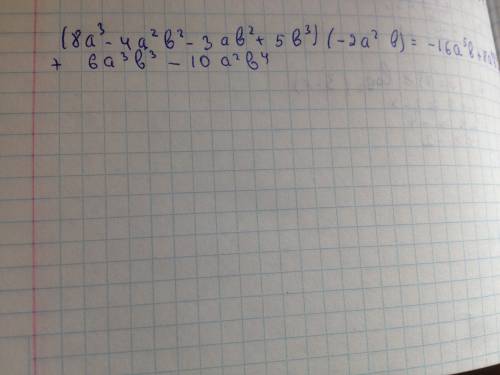 (8a³ - 4a²b² - 3ab² + 5b³) (-2a² b) = -16a⁵b + 8a
+ 6a³b³ - 10a²b⁴